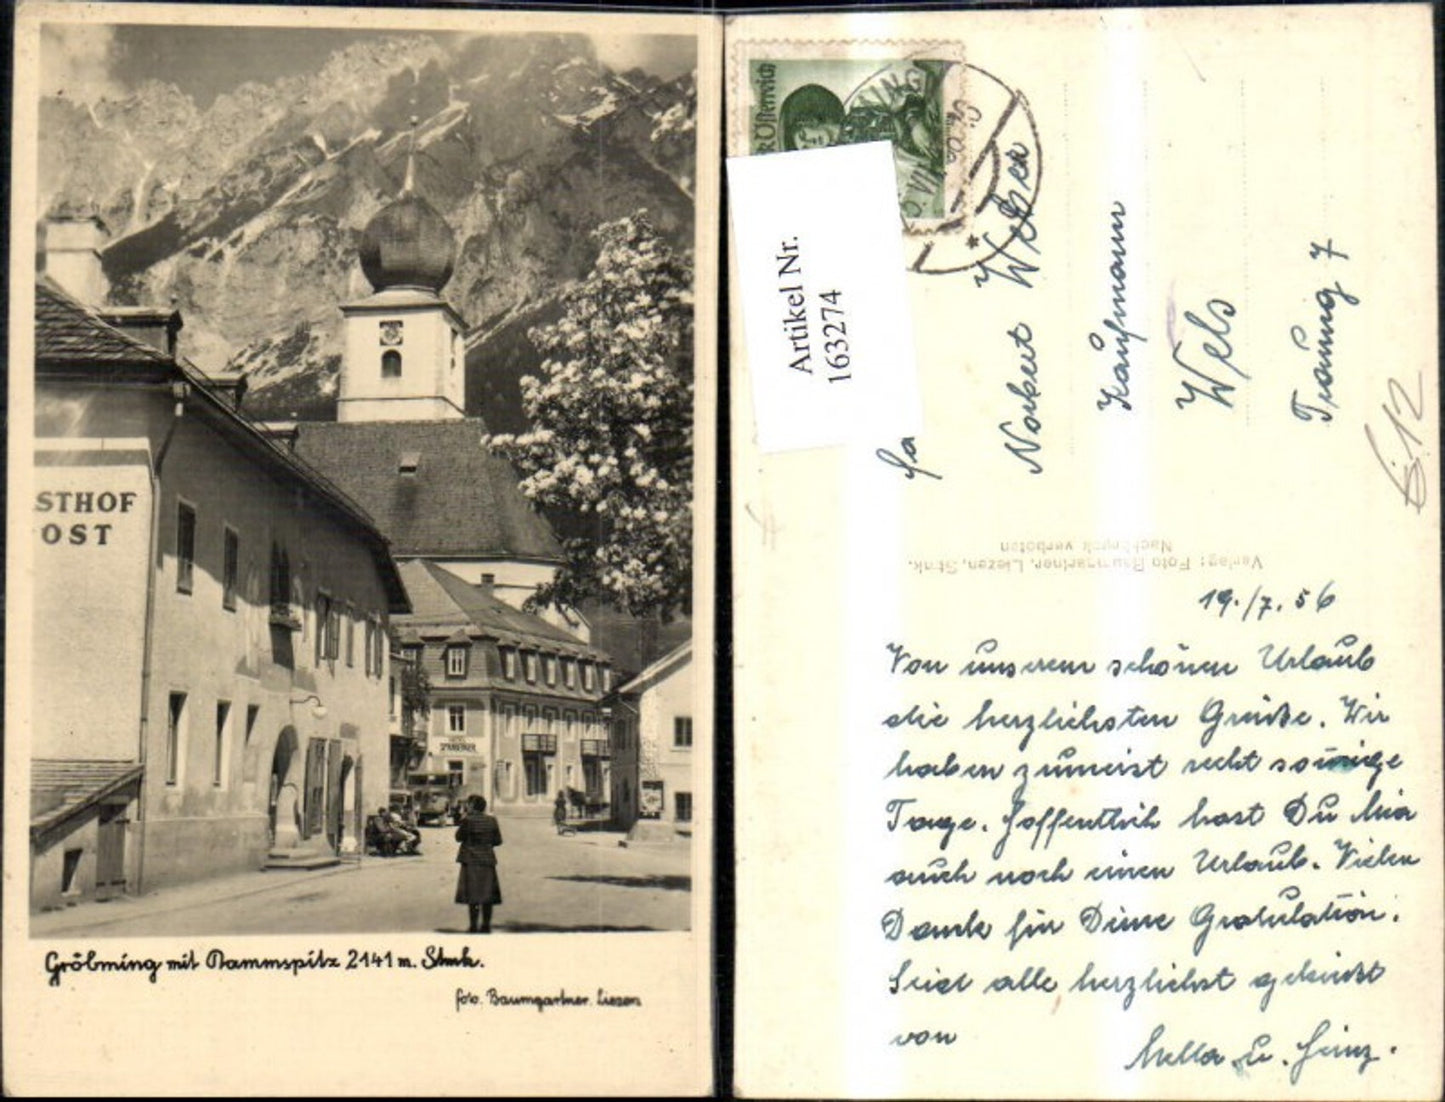 STHOF
OST
Gröbming mit Kammspitz 2141 m. Stmk.
foto. Baumgartner. Liezen
Österreich
Artikel Nr.
163274
Fa
Norbert Weber
Kaufmann
Wels
Traung 7
612
Verlag: Foto Baumgartner, Liezen, Stmk.
Nachdruck verboten
19./7. 56
Von unserem schönen Urlaub
die herzlichsten Grüße. Wir
haben zumeist recht sonnige
Tage. Hoffentlich hast Du Mia
auch noch einen Urlaub. Vielen
Dank für Deine Gratulation.
Seid alle herzlichst geküsst
von
Mella u. Heinz.